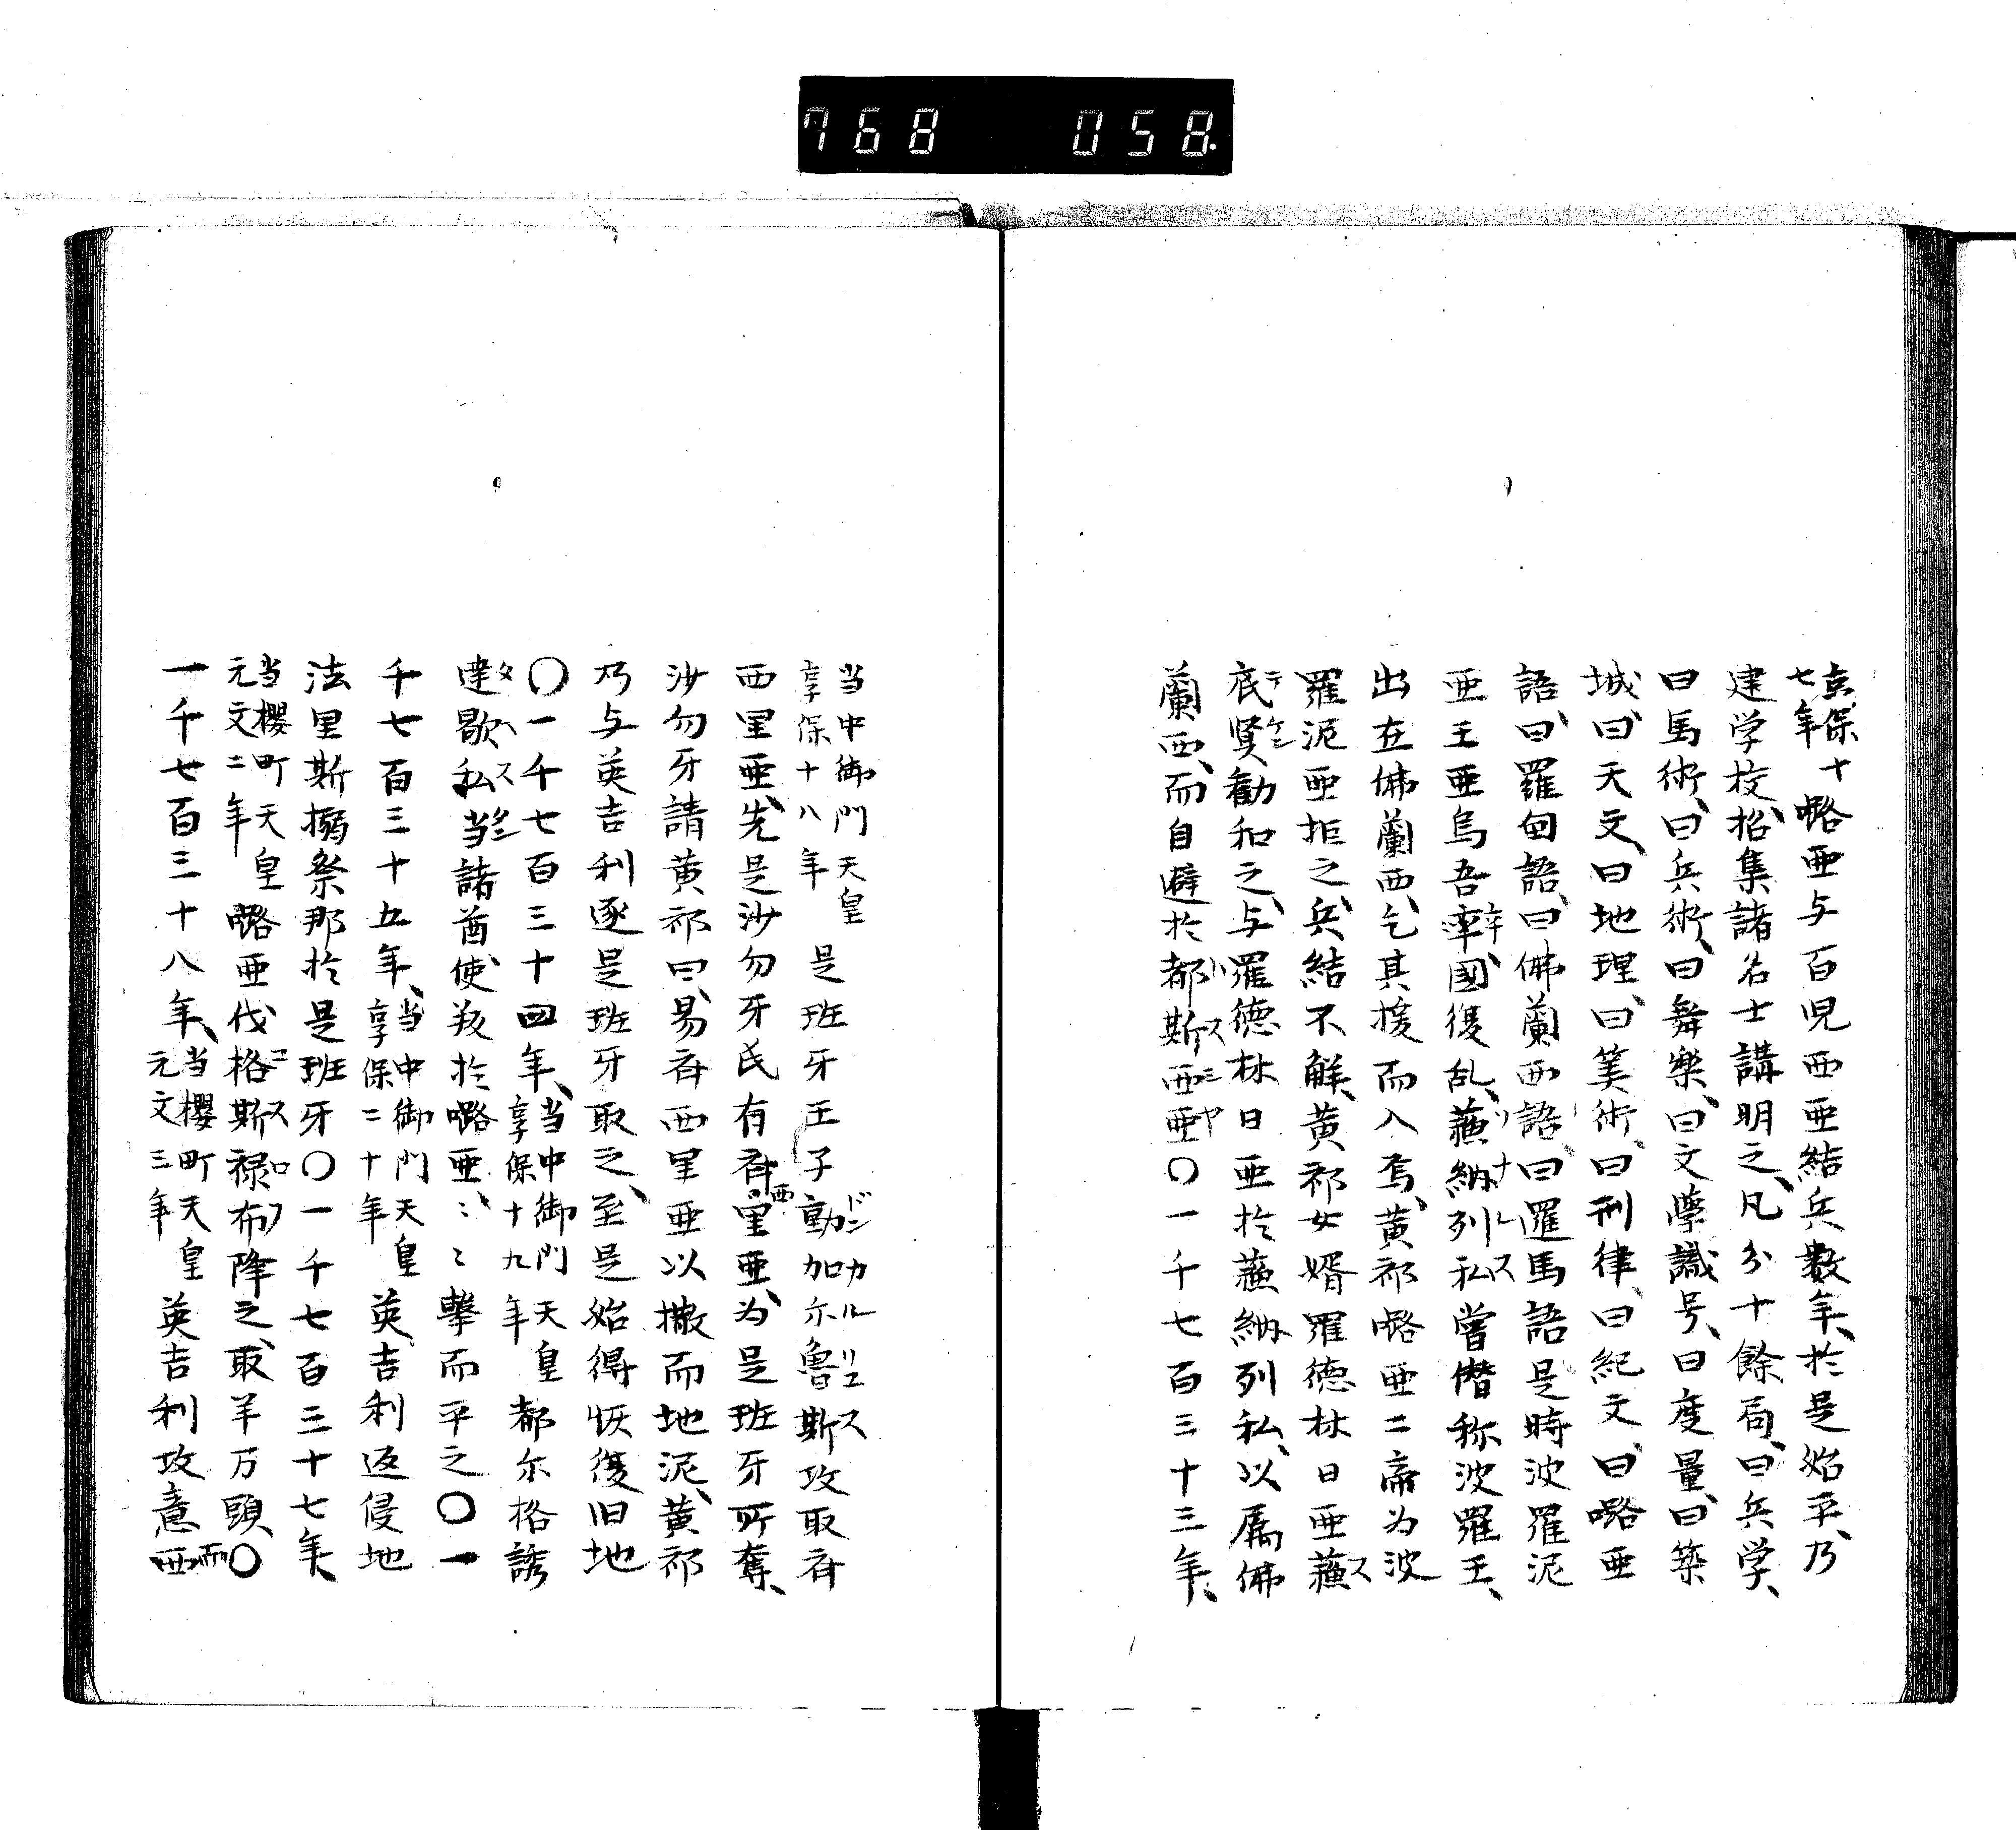 768 058.
享保十七年 略亜与百児西亜結兵数年、於是始平、乃
建学校、招集諸名士講明之、凡分十餘局、曰兵学、
曰馬術、曰兵術、曰舞楽、曰文学識号、曰度量、曰築
城、曰天文、曰地理、曰筭術、曰刑律、曰紀文、曰略亜
語、曰羅甸語、曰佛蘭西語、曰羅馬語是時波羅泥
亜王亜烏吾率国復乱、蘓納列私嘗僭称波羅王、
出在佛蘭西、乞其援而入焉、黄祁略亜二帝為波
羅泥亜拒之、兵結不觧、黄祁女婿羅徳林日亜蘓
底賢勧和之、与羅徳林日亜於蘓納列私、以属佛
蘭西、而自避於都斯西亜〇一千七百三十三年、
当中御門天皇享保十八年 是班牙王子動加尓魯斯攻取斉
西里亜、先是沙勿牙氏有斉西里亜、為是班牙所奪、
沙勿牙請黄祁曰、易斉西里亜以撒而地泥、黄祁
乃与英吉利逐是班牙取之、至是始得恢復旧地
〇一千七百三十四年、当中御門天皇享保十九年 都尓格誘
達歇私当諸酋使、叛於略亜、〻〻撃而平之〇一
千七百三十五年、当中御門天皇享保二十年 英吉利返侵地
法里斯搦祭那於是班牙〇一千七百三十七年、
当櫻町天皇元文二年 略亜伐格斯禄布降之、取羊万頭、〇
一千七百三十八年、当櫻町天皇元文三年 英吉利攻意西而